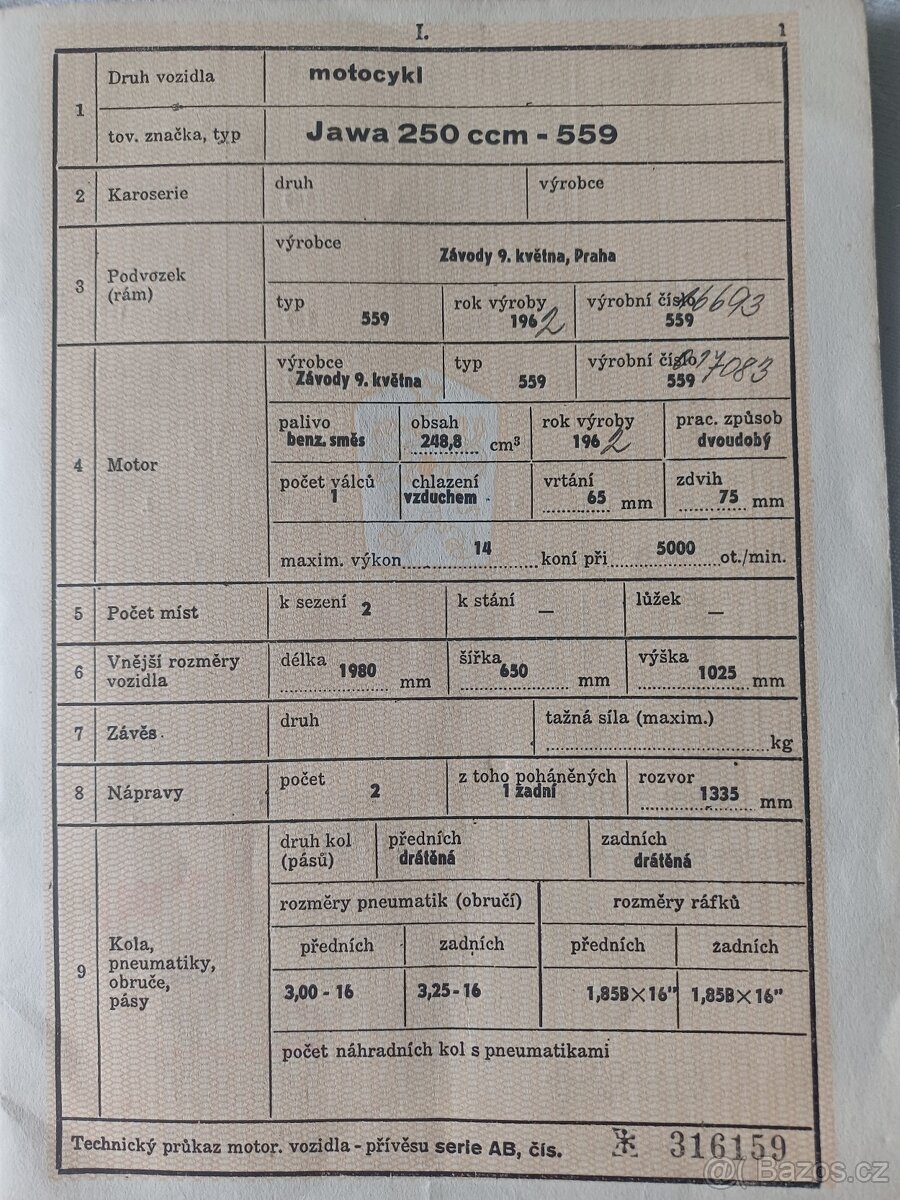 I. 1
1 Druh vozidla motocykl
tov. značka, typ Jawa 250 ccm - 559
2 Karoserie druh výrobce
3 Podvozek (rám) výrobce
Závody 9. května, Praha
typ rok výroby výrobní číslo 16693
559 1962 559
4 Motor
výrobce typ výrobní číslo 017083
Závody 9. května 559 559
palivo obsah rok výroby prac. způsob
benz. směs 248,8 cm³ 1962 dvoudobý
počet válců chlazení vrtání zdvih
1 vzduchem 65 mm 75 mm
maxim. výkon 14 koní při 5000 ot./min.
5 Počet míst k sezení 2 k stání — lůžek —
6 Vnější rozměry vozidla délka 1980 mm šířka 650 mm výška 1025 mm
7 Závěs druh tažná síla (maxim.)
kg
8 Nápravy počet 2 z toho poháněných 1 žadní rozvor 1335 mm
9 Kola, pneumatiky, obruče, pásy
druh kol (pásů) předních drátěná zadních drátěná
rozměry pneumatik (obručí) rozměry ráfků
předních zadních předních zadních
3,00 - 16 3,25 - 16 1,85B×16" 1,85B×16"
počet náhradních kol s pneumatikami
Technický průkaz motor. vozidla - přívěsu serie AB, čís. 316159
@ Bazos.cz